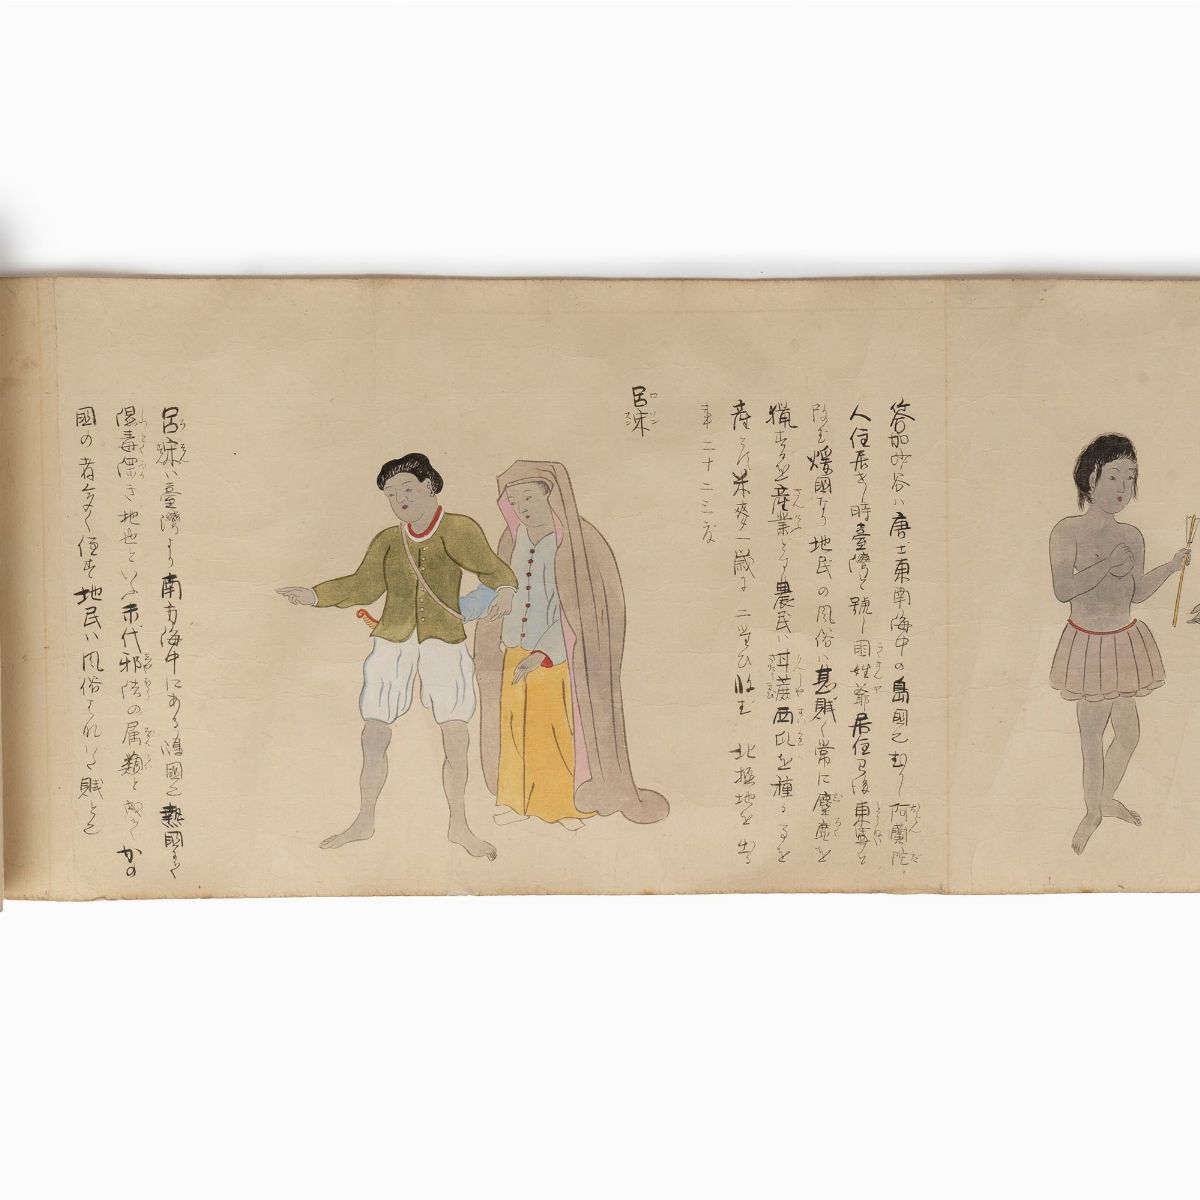 答加沙谷ハ唐土東南海中の島國也 むかし阿蘭陀
人住居せし時臺灣と號し國姓爺居住已後東寧と
改む 煖國なり 地民の風俗ハ甚賎く 常に麋鹿を
猟するを産業とす 農民ハ甘蔗西瓜を種る
産とし米麥一歳に二度ひ收む 北極地を出る
事二十二三度
呂宋
呂宋ハ臺灣より南方海中にある嶋國也 熱國にて
湿毒深き地也といふ 末代邪法の属類と成 かの
國の者多く住す 地民ハ風俗はなハた賎しと也